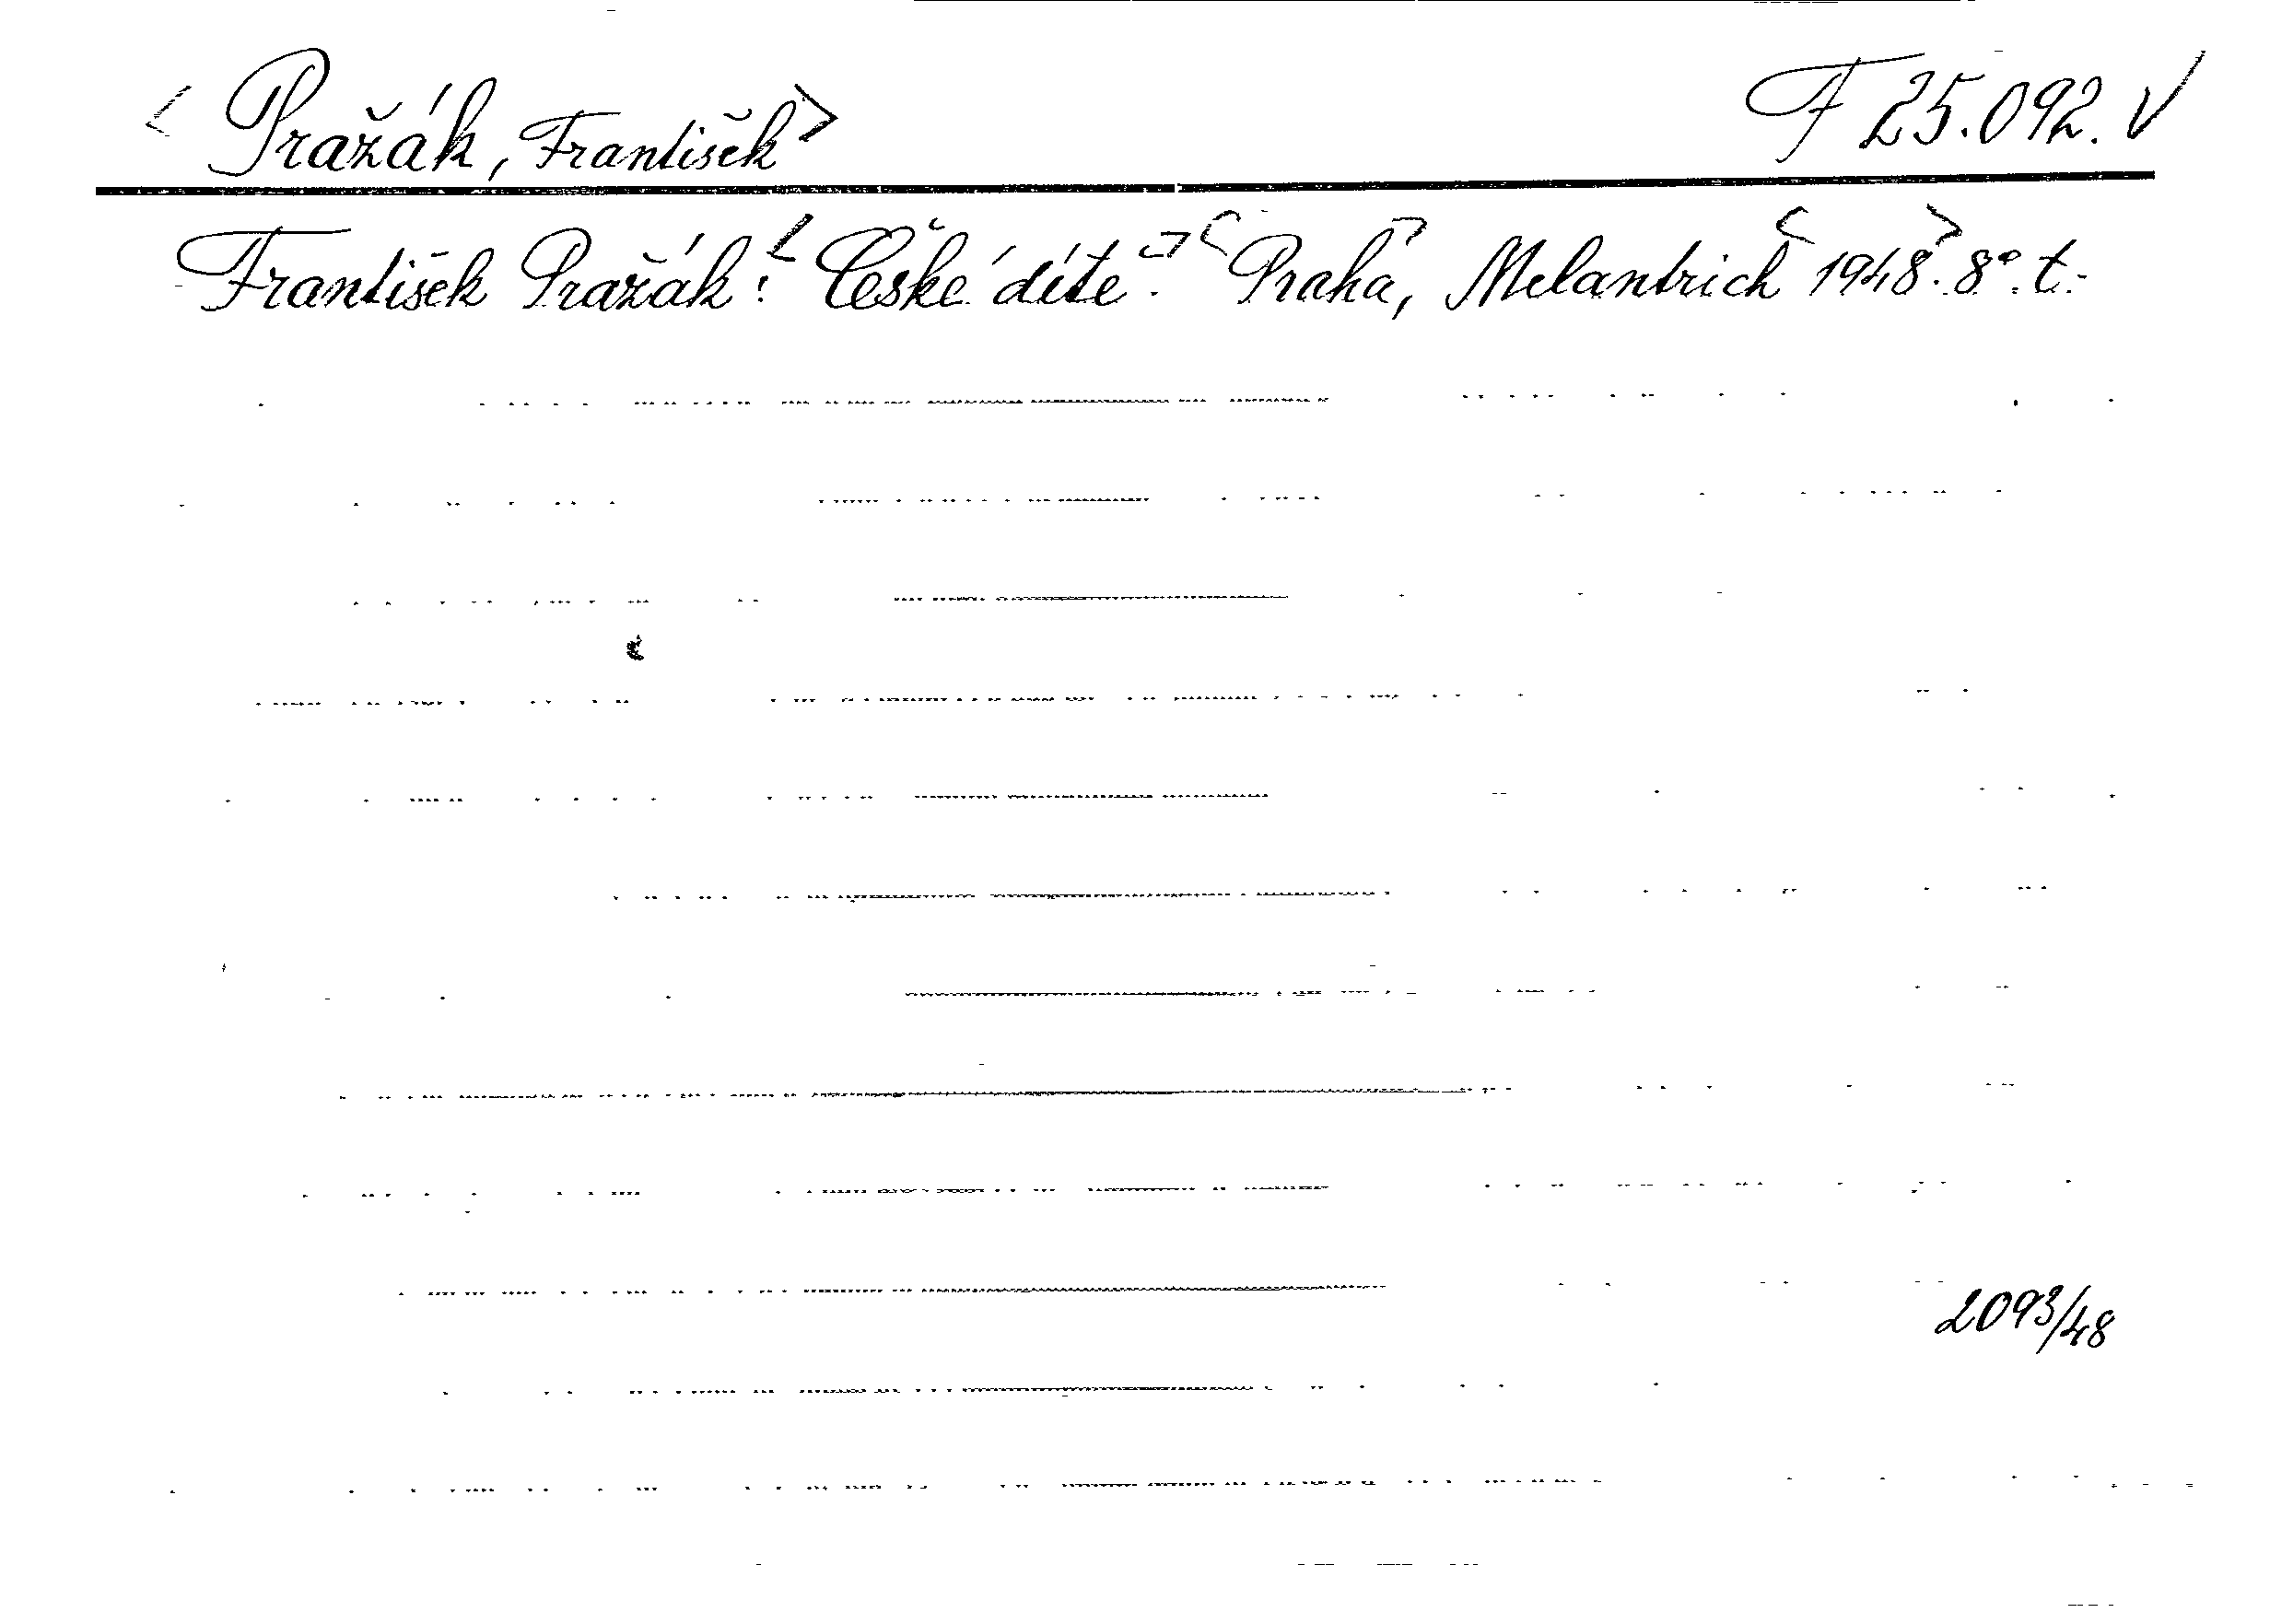 < Pražák, František > F 25.092. √
František Pražák: < České díte. > < Praha, > Melantrich < 1948. > 8°. t.-
2093/48